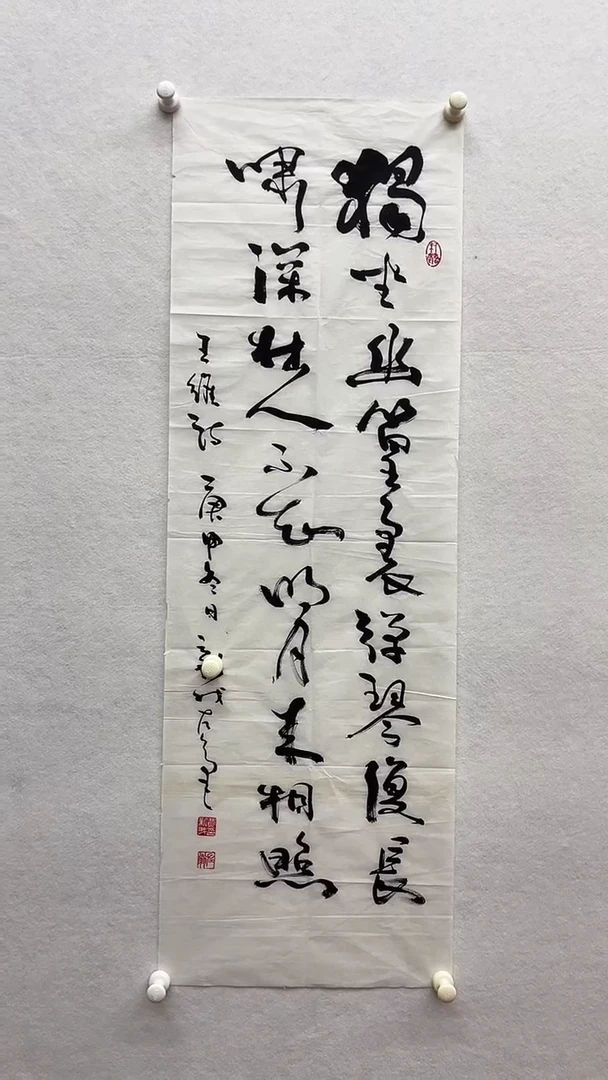 獨坐幽篁裏彈琴復長
嘯深林人不知明月來相照
王維詩 庚申冬日